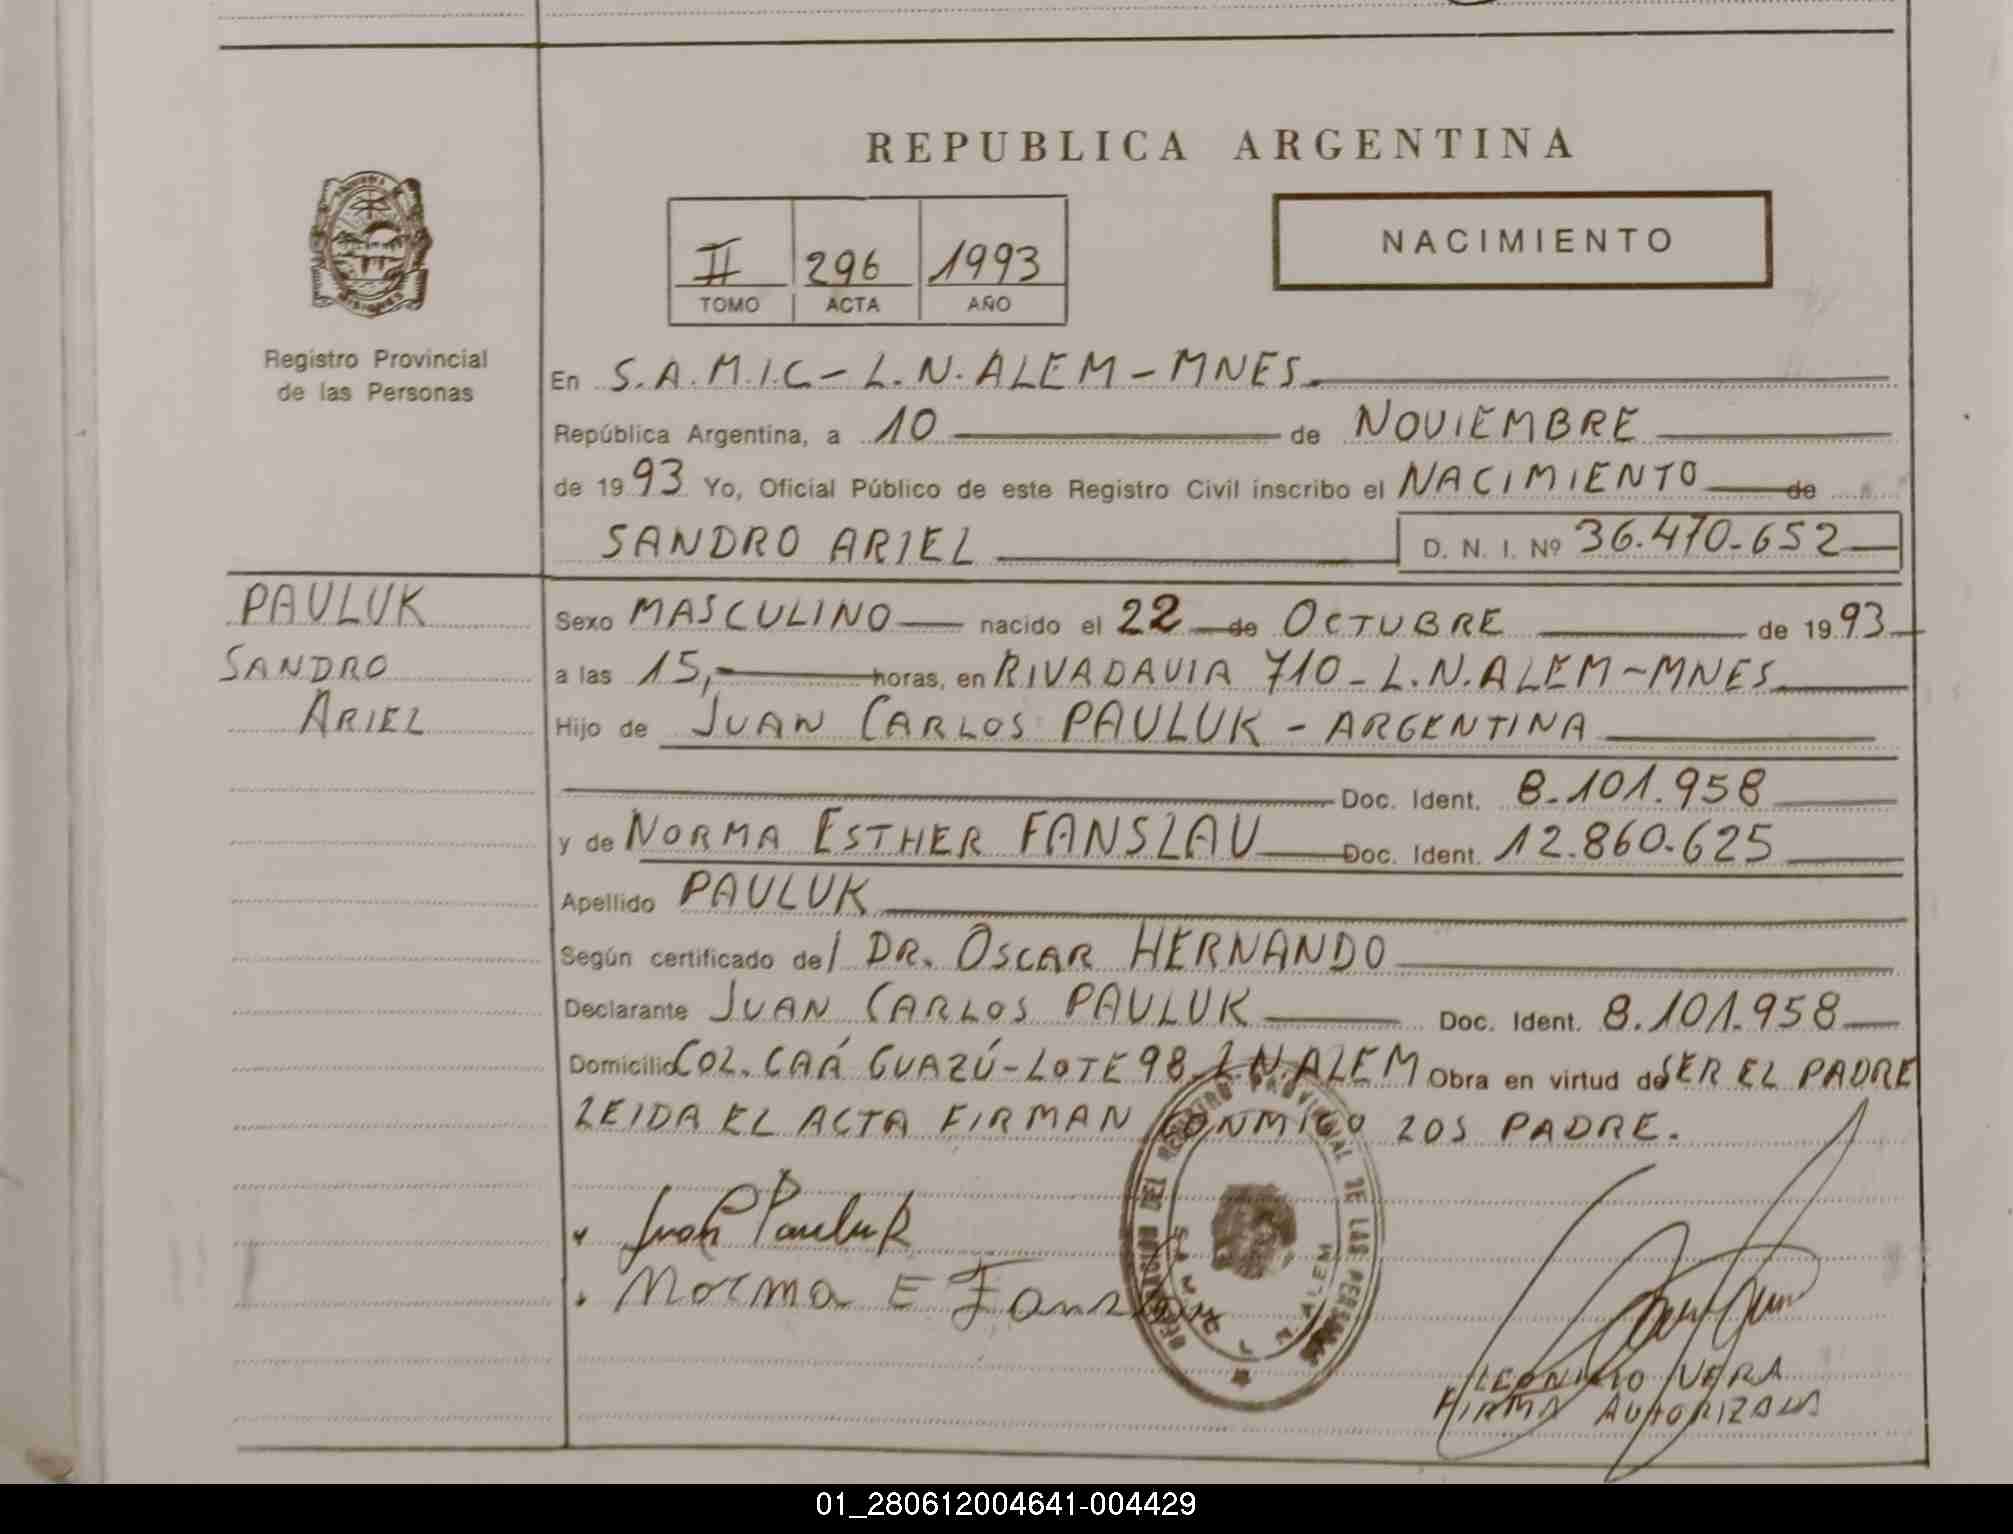 REPUBLICA ARGENTINA
NACIMIENTO
II 296 1993
TOMO ACTA AÑO
Registro Provincial
de las Personas
En S.A.M.I.C- L.N.ALEM-MNES.
República Argentina, a 10 de NOVIEMBRE
de 1993 Yo, Oficial Público de este Registro Civil inscribo el NACIMIENTO de
SANDRO ARIEL D. N. I. Nº 36.470.652
PAULUK
SANDRO
ARIEL
Sexo MASCULINO nacido el 22 de OCTUBRE de 1993
a las 15, horas, en RIVADAVIA 710-L.N.ALEM-MNES
Hijo de JUAN CARLOS PAULUK - ARGENTINA
Doc. Ident. 8.101.958
y de NORMA ESTHER FANSLAU Doc. Ident. 12.860.625
Apellido PAULUK
Según certificado del DR. OSCAR HERNANDO
Declarante JUAN CARLOS PAULUK Doc. Ident. 8.101.958
Domicilio COL. CAÁ GUAZÚ-LOTE 98-L.N.ALEM Obra en virtud de SER EL PADRE
LEIDA EL ACTA FIRMAN CONMIGO LOS PADRE.
Juan Pauluk
Norma E Fanslau
REGISTRO PROVINCIAL DE LAS PERSONAS
L. N. ALEM
VERA
FIRMA AUTORIZADA
01_280612004641-004429